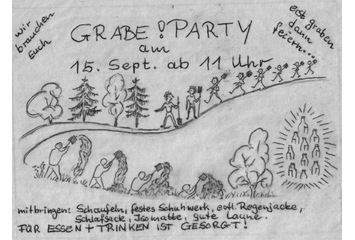 wir
brauchen
Euch
GRABE! PARTY
am
15. Sept. ab 11 Uhr
erst graben
dann
feiern...
mitbringen: Schaufeln, festes Schuhwerk, evtl. Regenjacke,
Schlafsack, Isomatte, gute Laune.
FÜR ESSEN + TRINKEN IST GESORGT!